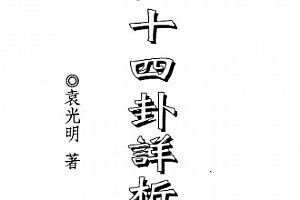 十四卦詳析
◎袁光明 著